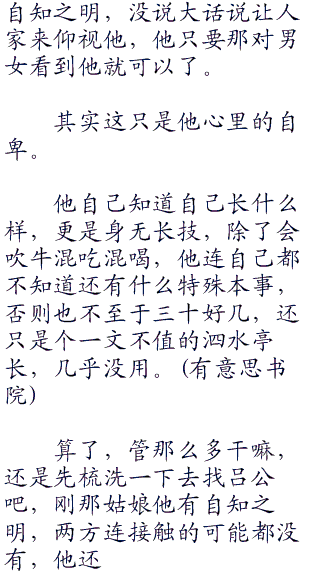 自知之明，没说大话说让人
家来仰视他，他只要那对男
女看到他就可以了。
其实这只是他心里的自
卑。
他自己知道自己长什么
样，更是身无长技，除了会
吹牛混吃混喝，他连自己都
不知道还有什么特殊本事，
否则也不至于三十好几，还
只是个一文不值的泗水亭
长，几乎没用。（有意思书
院）
算了，管那么多干嘛，
还是先梳洗一下去找吕公
吧，刚那姑娘他有自知之
明，两方连接触的可能都没
有，他还